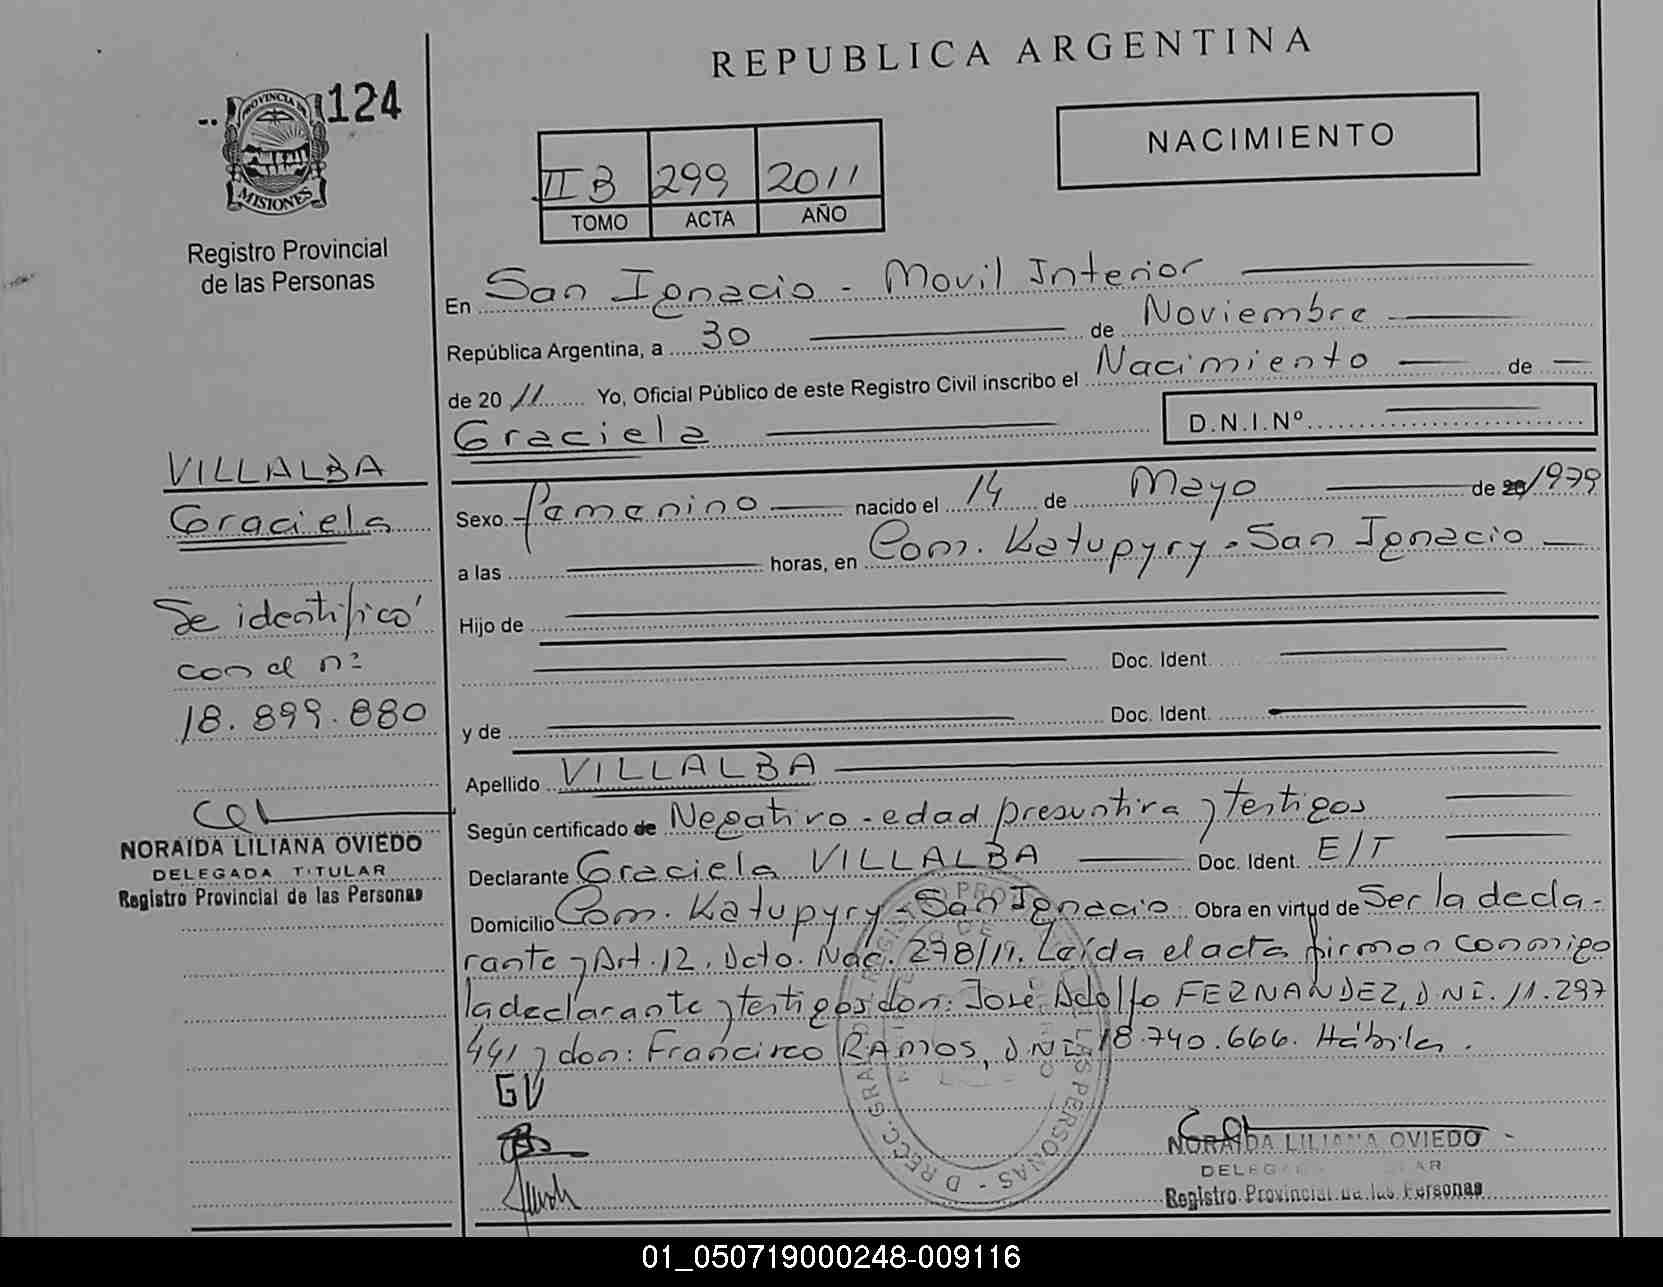 REPUBLICA ARGENTINA
124
PROVINCIA DE
MISIONES
Registro Provincial
de las Personas
NACIMIENTO
II B 299 2011
TOMO ACTA AÑO
En San Ignacio - Movil Interior
República Argentina, a 30 de Noviembre
de 2011 Yo, Oficial Público de este Registro Civil inscribo el Nacimiento de
Graciela D.N.I.Nº
VILLALBA
Graciela
Se identificó
con el nº
18.899.880
NORAIDA LILIANA OVIEDO
DELEGADA TITULAR
Registro Provincial de las Personas
Sexo femenino nacido el 14 de Mayo de 20/1979
a las horas, en Com. Katupyry - San Ignacio
Hijo de
Doc. Ident.
y de Doc. Ident.
Apellido VILLALBA
Según certificado de Negativo - edad presuntiva y testigos
Declarante Graciela VILLALBA Doc. Ident. E/T
Domicilio Com. Katupyry - San Ignacio Obra en virtud de Ser la decla-
rante y Art. 12. Dcto. Nac. 278/11. Leída el acta firman conmigo
la declarante y testigos don: José Adolfo FERNANDEZ, DNI. 11.297
441 y don: Francisco RAMOS, DNI. 18.740.666. Hábiles.
GV
NORAIDA LILIANA OVIEDO
Registro Provincial de las Personas
01_050719000248-009116